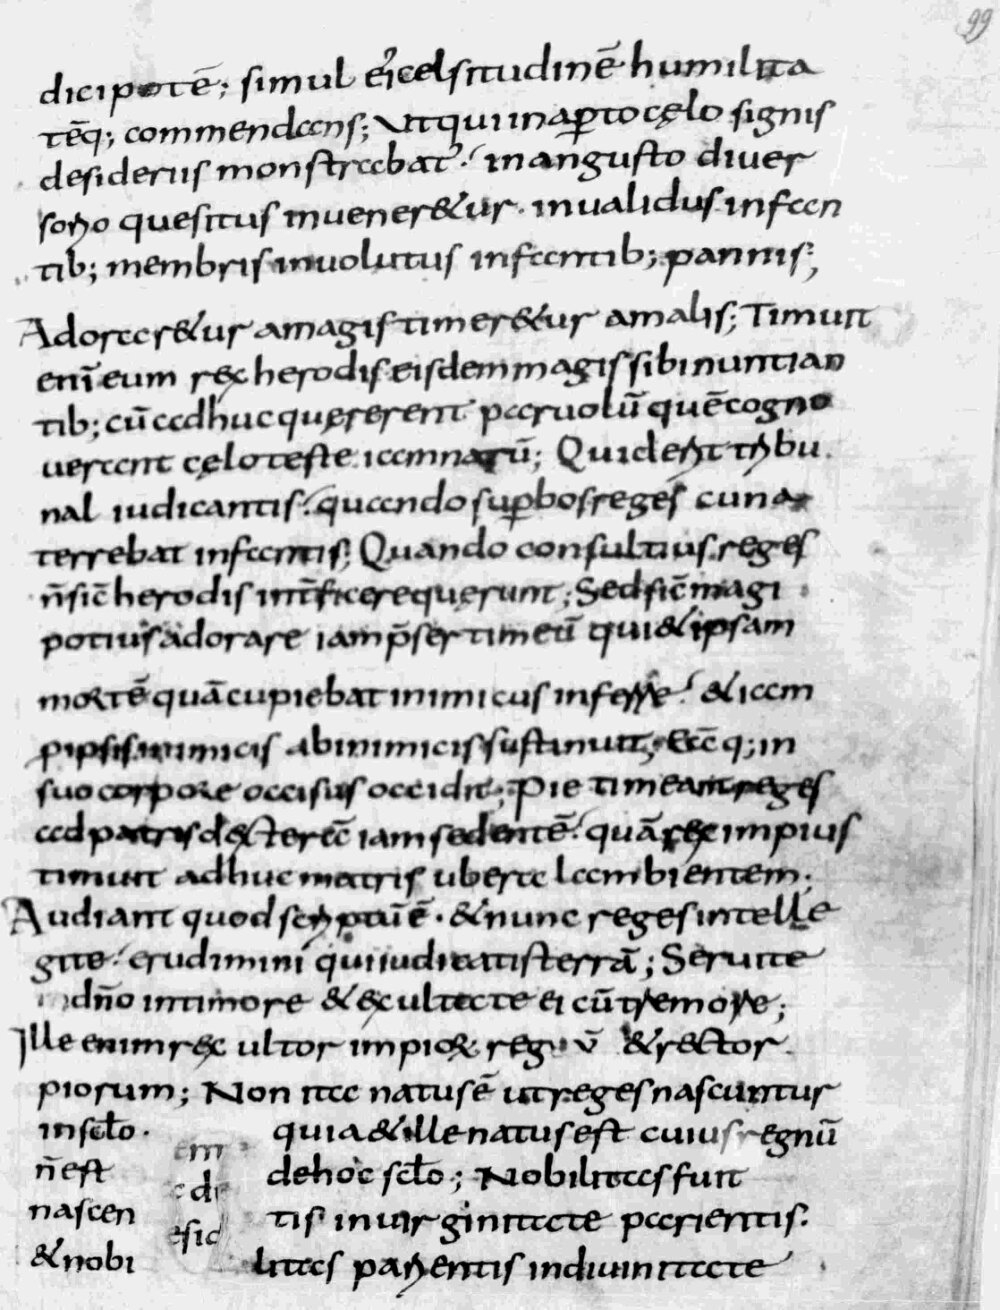 99
dici potē; simul et celsitudinē humilita
tēq; commendans; Ut qui in aꝑto cęlo signis
desideriis monstrabat᾽. in angusto diuer
sorio quesitus inueneretur. inualidus infan
tib; membris inuolutus infantib; pannis;
Adoraretur a magis timeretur a malis; Timuit
enī eum rex herodis eisdem magis sibi nuntian
tib; cū adhuc quęrerent paruolū quē cogno
uerant cęlo teste iam natū; Quid erit tribu
nal iudicantis. quando suꝑbos reges cuna
terrebat infantis; Quando consultius reges
ñ sic̄ herodis int̄ficere quęrunt; Sed sic̄ magi
potius adorare iam p̄sertim eū qui & ipsam
mortē quā cupiebat inimicus inferre. & iam
ꝓ ipsis inimicis ab inimicis sustinuit; Ecc̄q; in
suo corpore occisus occidit; Pie timeant reges
ad patris dexterā iam sedentē. quā rex impius
timuit adhuc matris ubera lambientem;
Audiant quod scriptū ē. & nunc reges intelle
gite. erudimini qui iudicatis terrā; Seruite
dño in timore & exultate ei cū tremore;
Ille enim rex ultor impioꝝ reg v̄ & rector
piorum; Non ita natus ē ut reges nascuntur
in sc̄lo. quia & ille natus est cuius regnū
ñ est de hoc sc̄lo; Nobilitas fuit
nascen tis in uirginitate parientis.
& nobi litas parientis in diuinitate